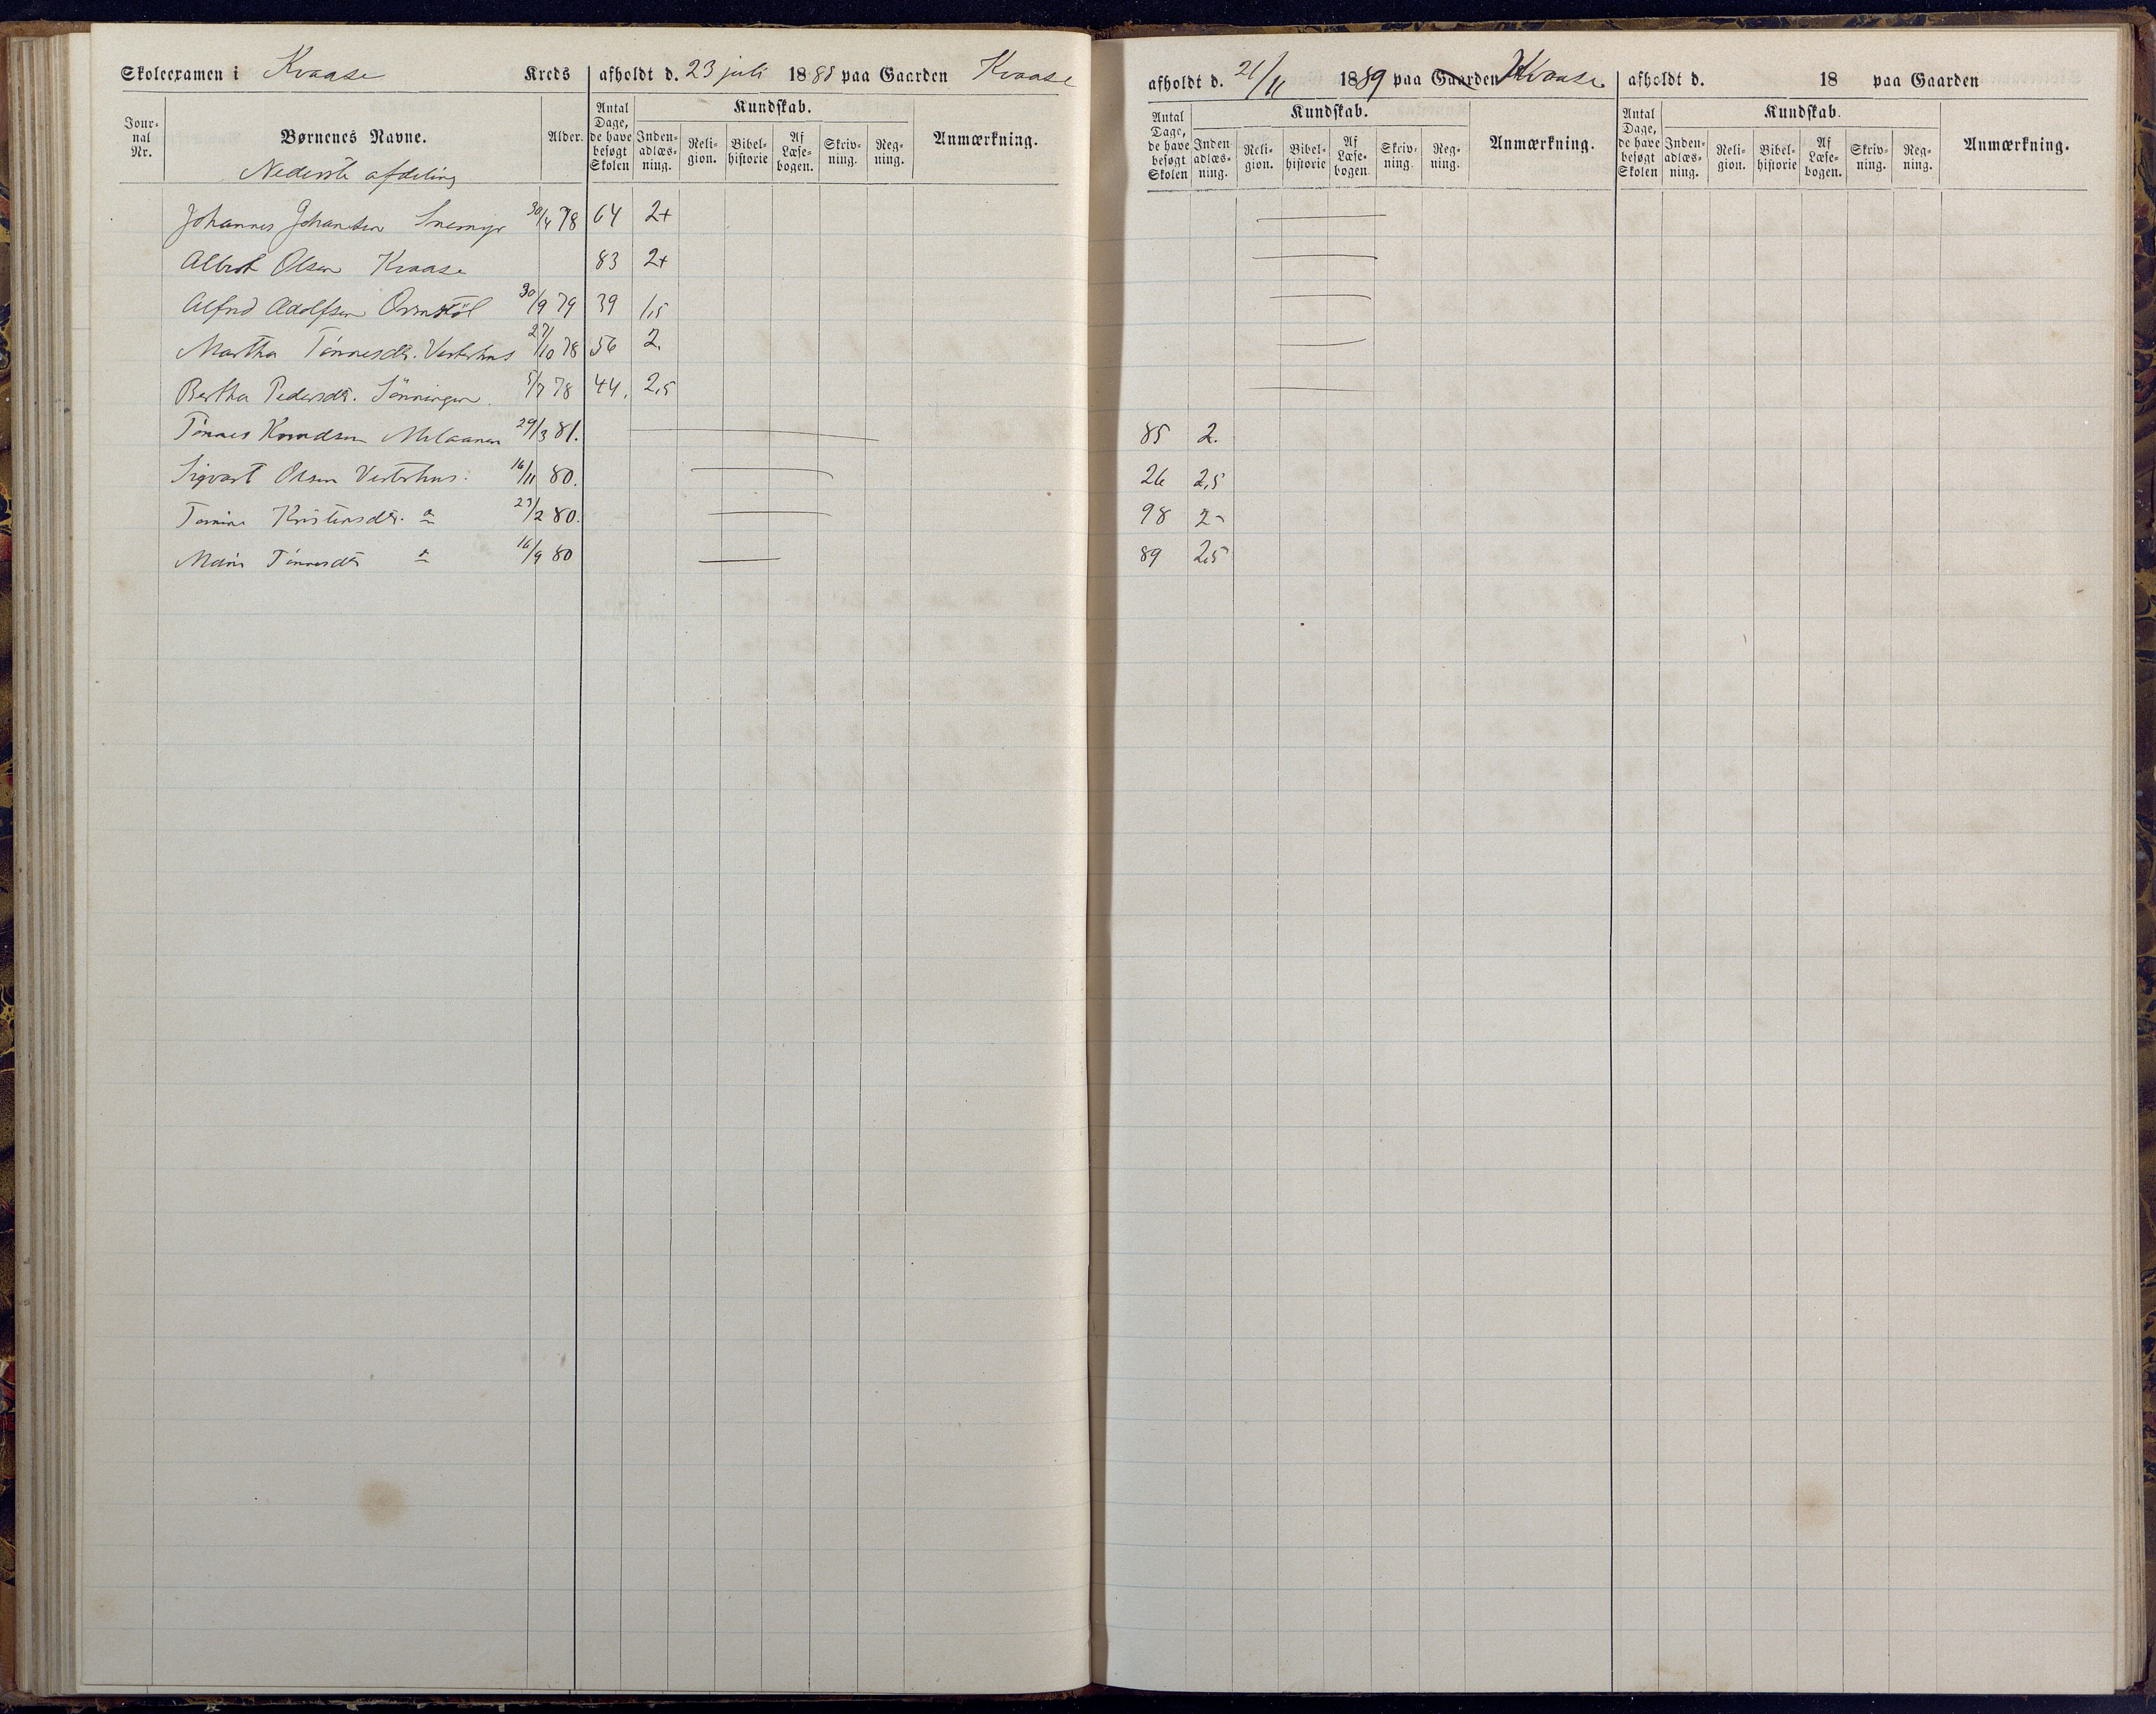 Skoleexamen i Kvaase Kreds afholdt d. 23 juli 1888 paa Gaarden Kvaase
Jour-nal Nr. Børnenes Navne. Alder. Antal Dage, de have besøgt Skolen Kundskab. Inden-adlæs-ning. Reli-gion. Bibel-historie Af Læse-bogen. Skriv-ning. Reg-ning. Anmærkning.
Nederste afdeling
Johannes Johansen 30/4 78 64 2+
Albert Olsen Kvaase 83 2+
Alfred Adolfsen 30/9 79 39 1,5
Martha Tønnesdtr. Vesterhus 27/10 78 56 2.
Bertha Pedersdtr. 5/7 78 44. 2,5
Tønnes 29/3 81.
Sigvart Olsen Vesterhus. 16/11 80.
Tomine Kristensdtr. 80.
Tønnesdtr 16/9 80
afholdt d. 21/11 1889 paa Gaarden Kvaase
Antal Dage, de have besøgt Skolen Kundskab. Inden-adlæs-ning. Reli-gion. Bibel-historie Af Læse-bogen. Skriv-ning. Reg-ning. Anmærkning.
85 2.
26 2,5
98 2-
89 2,5
afholdt d. 18 paa Gaarden
Antal Dage, de have besøgt Skolen Kundskab. Inden-adlæs-ning. Reli-gion. Bibel-historie Af Læse-bogen. Skriv-ning. Reg-ning. Anmærkning.